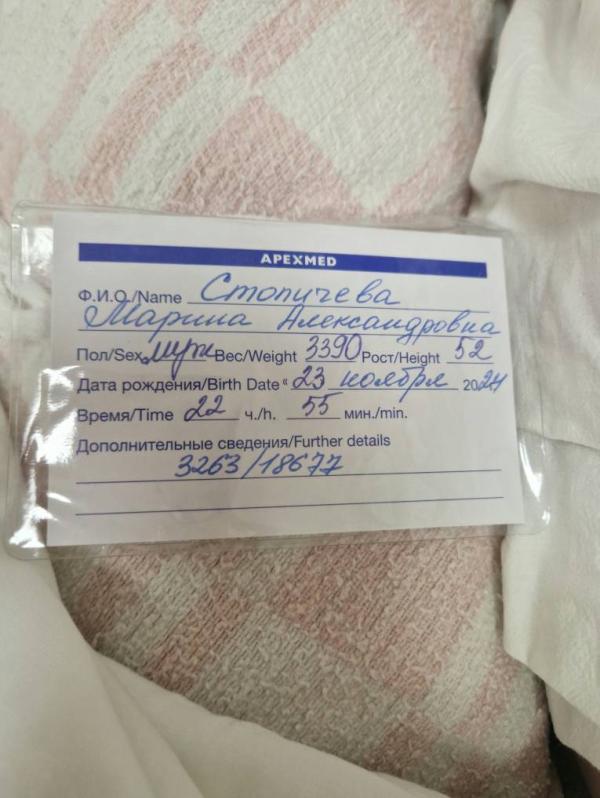 APEXMED
Ф.И.О./Name Стопичева
Марина Александровна
Пол/Sex муж Вес/Weight 3390 Рост/Height 52
Дата рождения/Birth Date “ 23 ноября 2024
Время/Time 22 ч./h. 55 мин./min.
Дополнительные сведения/Further details
3263/18677